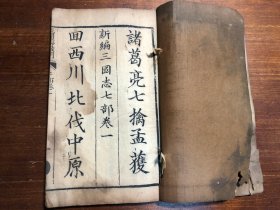 諸葛亮七擒孟獲
新編三國志七部卷一
回西川北伐中原